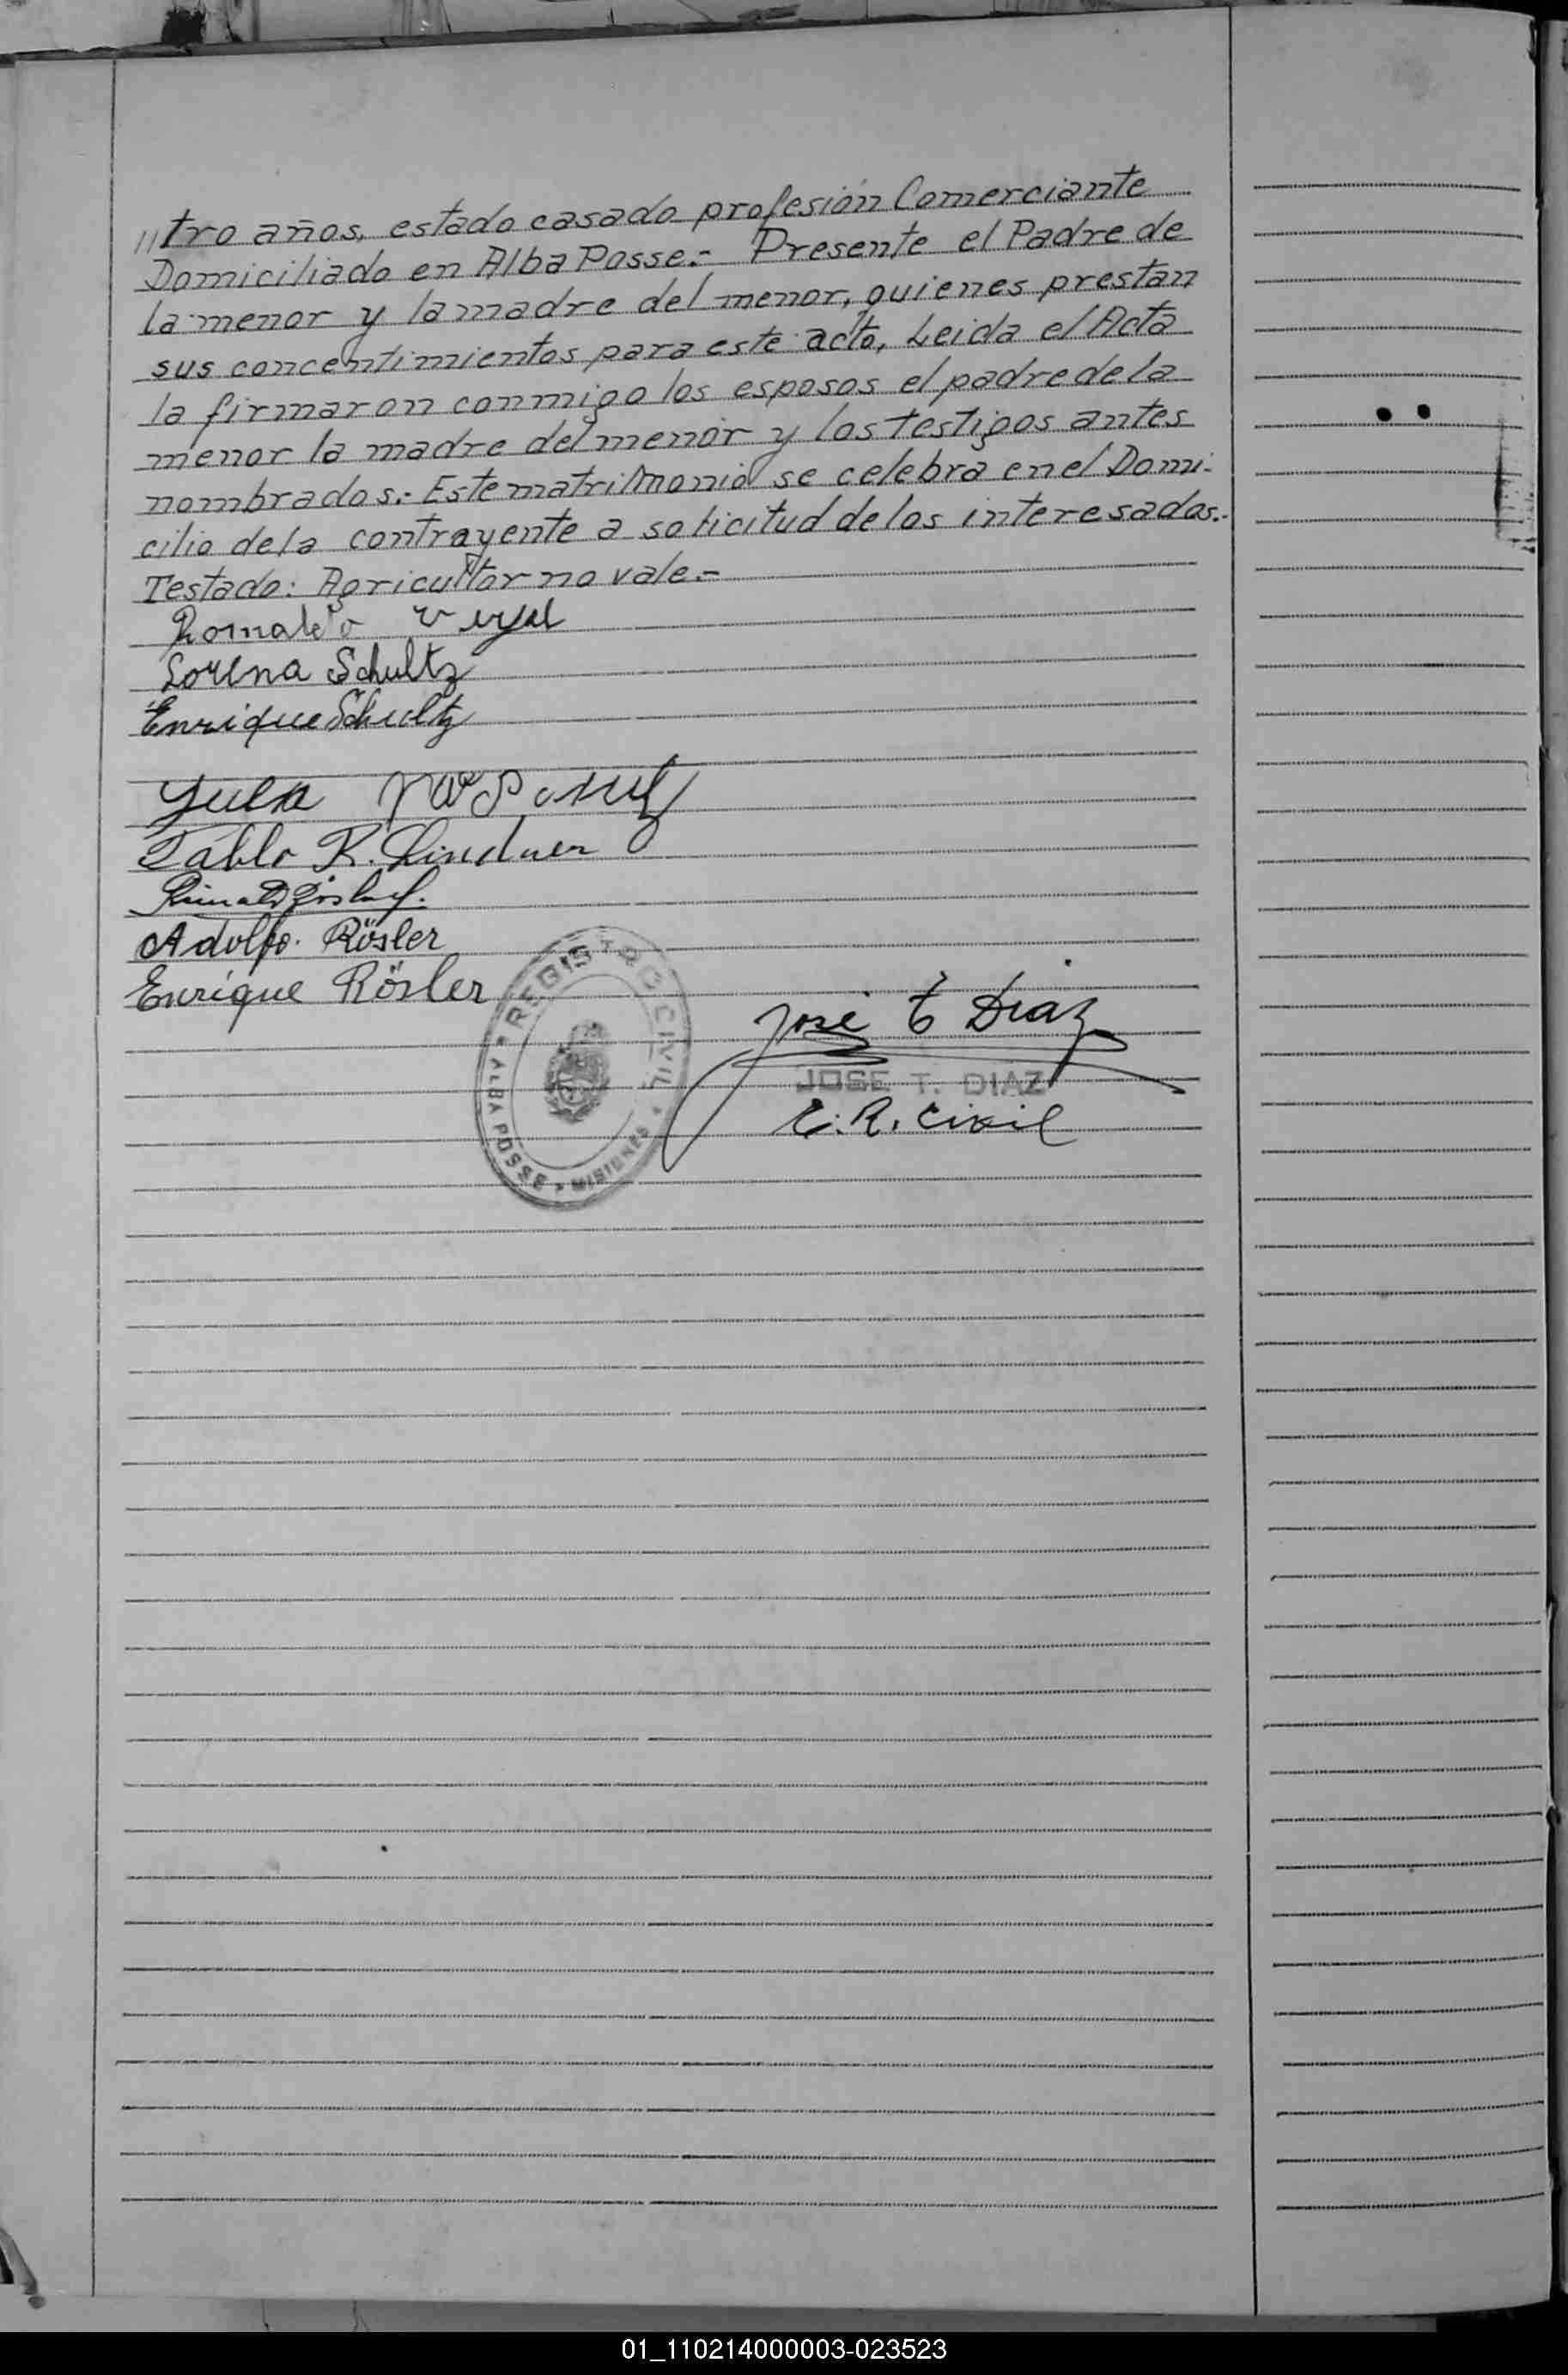 //tro años, estado casado profesión Comerciante
Domiciliado en Alba Posse.- Presente el Padre de
la menor y la madre del menor, quienes prestan
sus concentimientos para este acto, Leida el Acta
la firmaron conmigo los esposos el padre de la
menor la madre del menor y los testigos antes
nombrados.- Este matrimonio se celebra en el Domi-
cilio de la contrayente a solicitud de los interesados.-
Testado: Agricultor no vale.-
Romaldo
Lorena Schultz
Enrique Schultz
Pablo R. Lindner
Adolfo. Rösler
Enrique Rösler
REGISTRO CIVIL
ALBA POSSE - MISIONES
José T Diaz
JOSE T. DIAZ
E. R. Civil
01_110214000003-023523